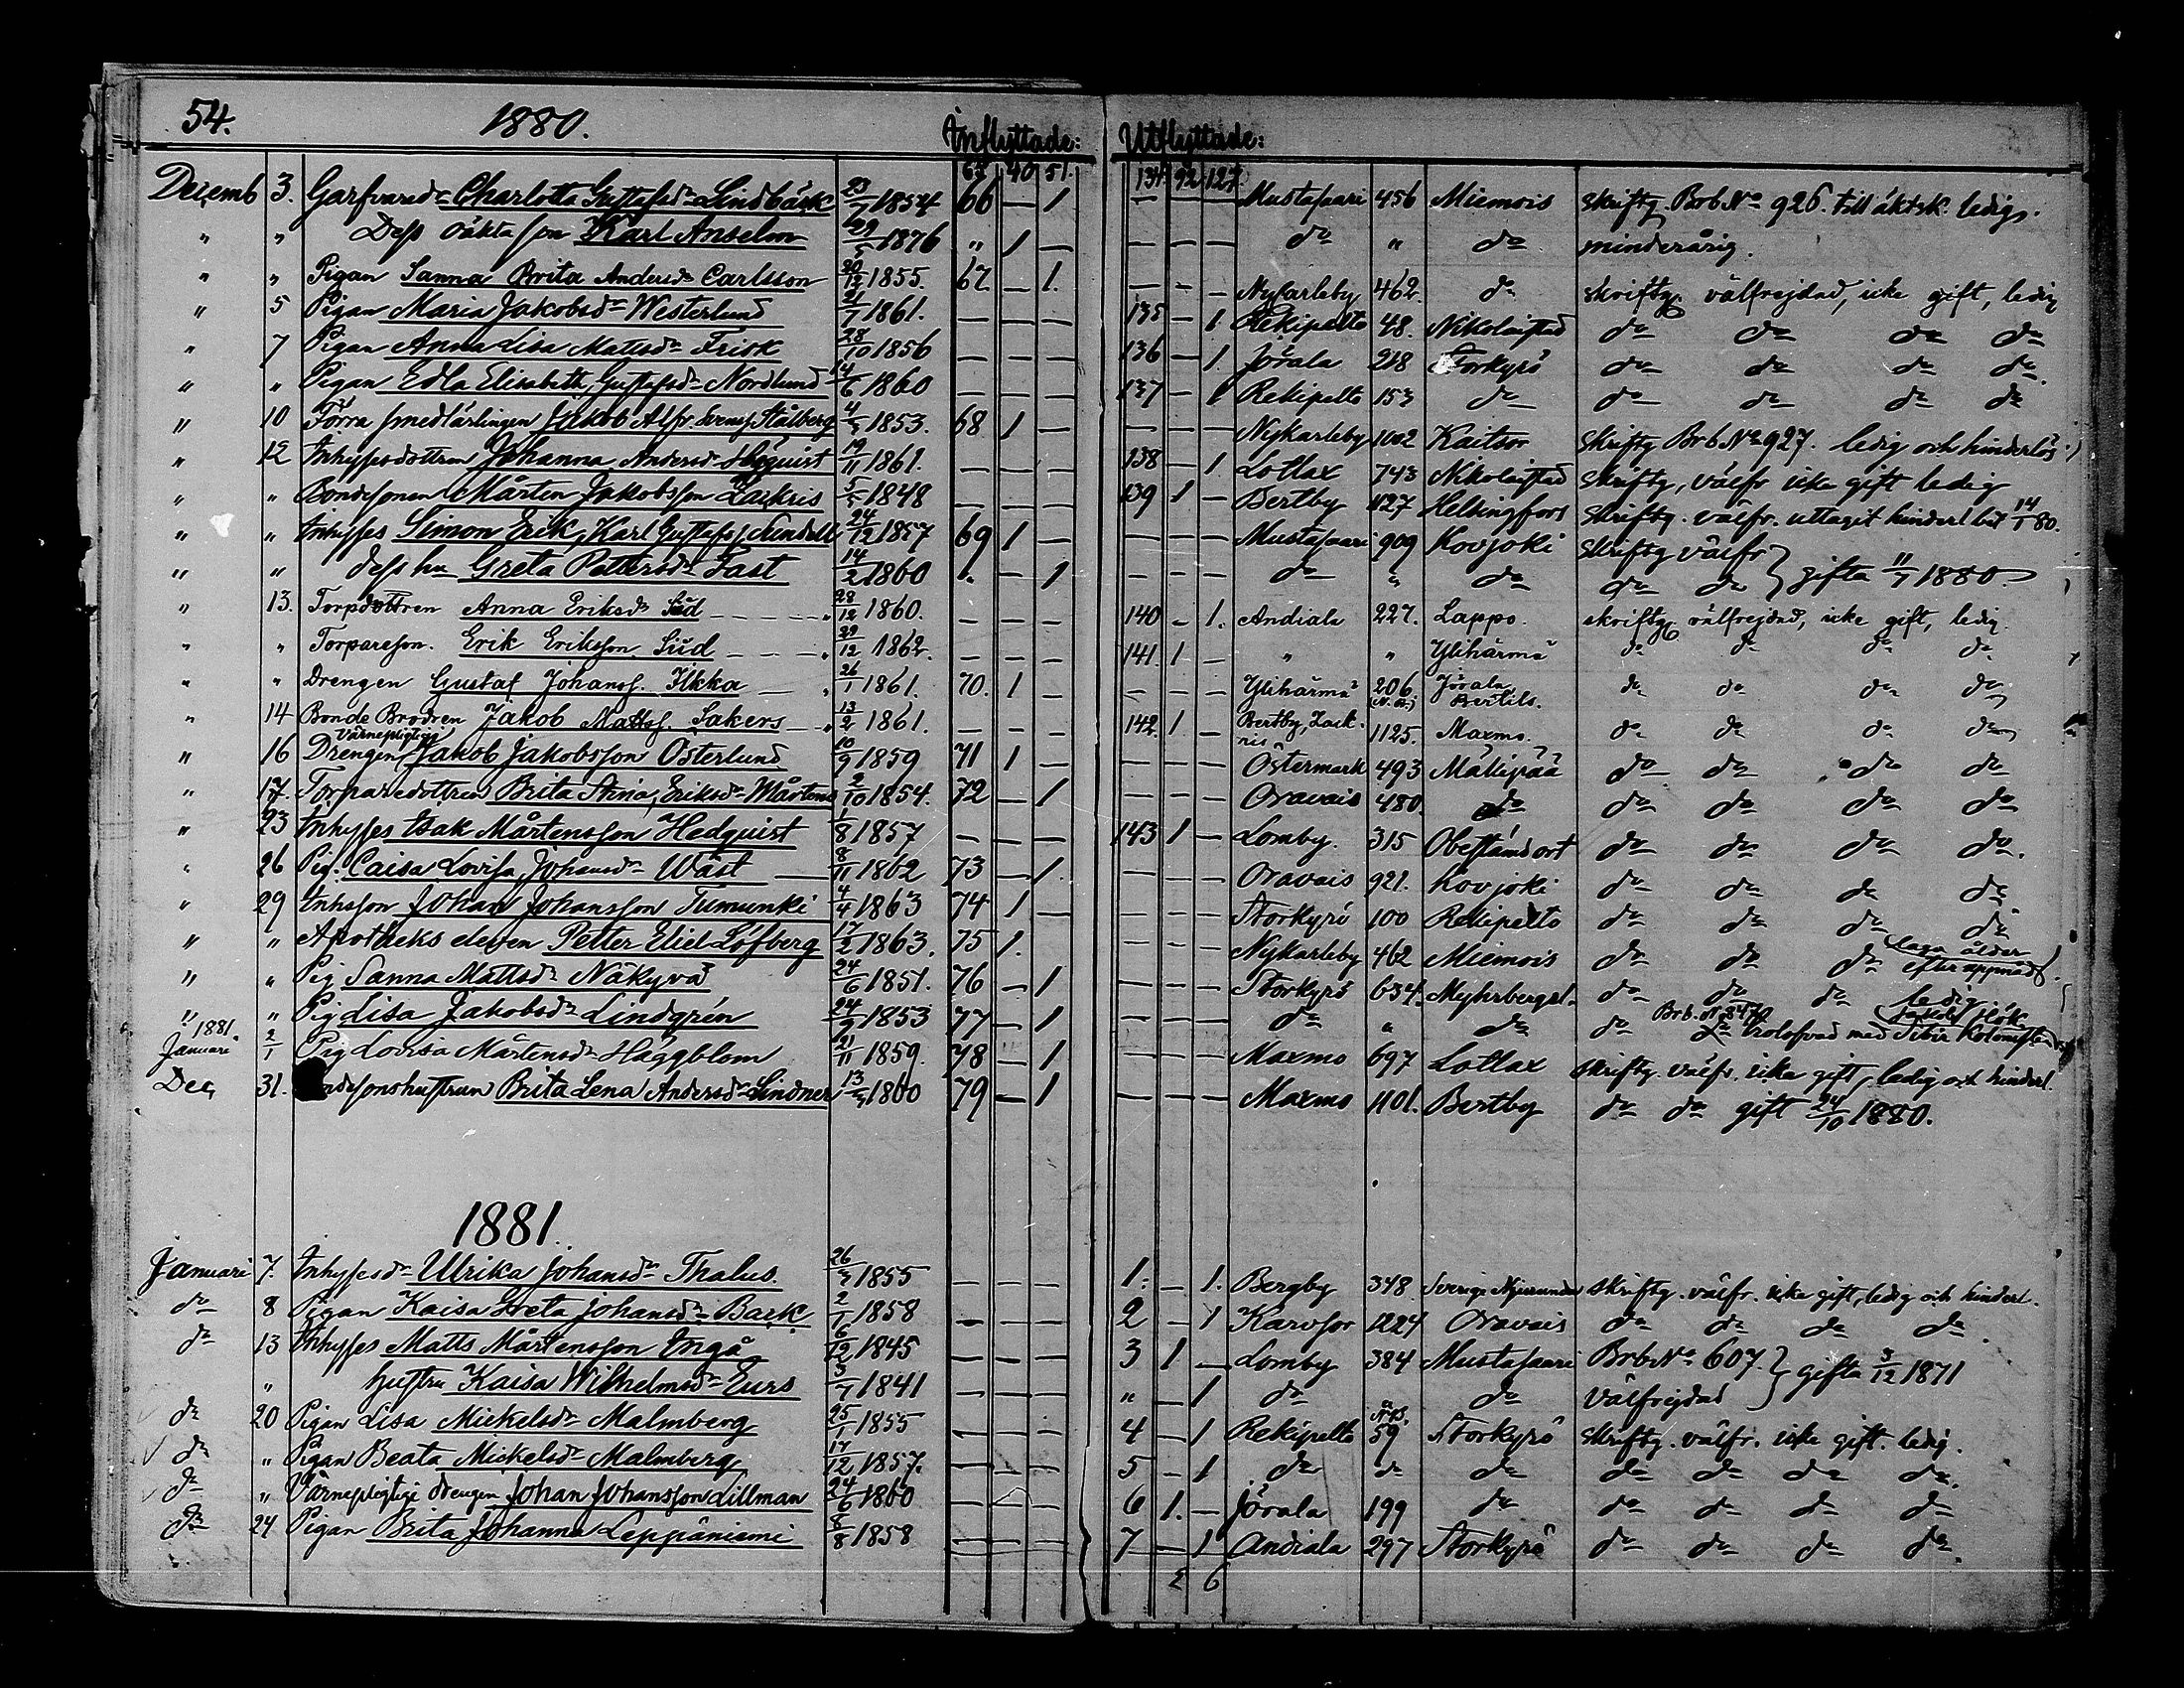 54. 1880. Inflyttade: Utflyttade:
65 40 51. 134. 92 127.
Decemb 3. Garfvared:r Charlotta Gustafsd:r Lindbäck 23/7 1854 66 — 1 — — — Mustasaari 456 Miemois skriftg. Brb No 926. till äktsk. ledig.
" " Dess oäkta son Karl Anselm 29/5 1876 " 1 — — — — do " do minderårig.
" " Pigan Sanna Brita Andersd:r Carlsson 30/12 1855. 67 — 1. — — — Nycarleby 462. do skriftg. välfrejdad, icke gift, ledig
" 5 Pigan Maria Jakobsd:r Westerlund 21/7 1861. — — — 135 — 1. Rekipelto 48. Nikolaistad do do do do
" 7 Pigan Anna Lisa Mattsd:r Frisk 28/10 1856 — — — 136 — 1. Jörala 218 Storkyrö do do do do.
" " Pigan Edla Elisabeth Gustafsd:r Nordlund 14/6 1860 — — — 137 — 1 Rekipelto 153 do do do do do
" 10 Förra smedlärlingen Jakob Alfr. Svenss. Stålberg 1853. 68 1 — — — — Nykarleby 1002 Kaitsor Skriftg Brb No 927. ledig och hinderlös
" 12 Inhysesdottren Johanna Andersd:r Hägquist 19/11 1861. — — — 138 — 1 Lotlax 743 Nikolaistad Skriftg, välfr icke gift ledig
" " Bondesonen Mårten Jakobsson Zackris 1848 — — — 139 1 — Bertby 1127 Helsingfors Skriftg. välfr. uttagit hinderl bet 14/1 80.
" " Inhyses Simon Erik, Karl Gustafss Nindell 24/12 1857 69 1 — — — — Mustasaari 909 Kovjoki Skriftg välfr
" " dess hu Greta Pettersd:r Fast 14/2 1860 " — 1 — — — do " do do do } gifta 11/7 1880
" 13. Torpdottren Anna Eriksd:r Süd 28/12 1860. — — — 140 — 1. Andiala 227. Lappo. skriftg. välfrejdad, icke gift, ledig.
" " Torpareson. Erik Eriksson Süd 29/12 1862. — — — 141. 1 — " " Ylihärmä do do do do
" " Drengen Gustaf Johanss. Ilkka 26/1 1861. 70. 1 — — — — Ylihärmä 206. Jörala, Bertils. do do do do
" 14 Bonde Brodren Jakob Mattss. Sakers 13/2 1861. — — — 142. 1 — Bertby, Zackris 1125. Maxmo. do do do do
" 16 Värnepligtige Drengen Jakob Jakobsson Österlund 10/9 1859 71 1 — — — — Östermark 493 Mäkipää do do do do
" 17. Torparedottren Brita Stina, Eriksd:r Mårtens 2/10 1854. 72 — 1 — — — Oravais 480. do do do do do
" 23 Inhyses Isak Mårtensson Hedquist 1/8 1857 — — — 143 1 — Lomby. 315 Obestämd ort do do do do.
" 26 Pig. Caisa Lovisa Johansd:r Wäst 8/11 1862 73 — 1. — — — Oravais 921. Kovjoki do do do do
" 29 Inhsson Johan Johansson Tumunki 4/4 1863 74 1 — — — — Storkyrö 100 Rekipelto do do do do
" " Apotheks eleven Petter Eliel Löfberg 17/2 1863. 75 1. — — — Nykarleby 462 Miemois do do do laga ålder efter uppnådt
" " Pig Sanna Mattsd:r Näkyvä 24/6 1851. 76 — 1 — — — Storkyrö 634. Myhrbergsl. do do do ledig
" " Pig Lisa Jakobsd:r Lindgrén 24/9 1853 77 — 1 — — — do " do do Brb. N. 8470 do trolofvad med Sibir Kolonisten
1881. Januari 2/1 Pig Lovisa Mårtensd:r Häggblom 21/11 1859. 78 — 1 — — — Maxmo 697 Lotlax skriftg. välfr. icke gift, ledig och hinderl.
Dec 31. ndesonshustrun Brita Lena Andersd:r Lindner 1860 79 — 1 — — — Maxmo 1101. Bertby do do gift 24/10 1880.
1881.
Januari 7. Inhysesd:r Ulrika Johansd:r Thalus. 1855 — — — 1. — 1. Bergby 348 Sverige Njurunda skriftg. välfr. icke gift, ledig och hinderl.
do 8 Pigan Kaisa Greta Johansd:r Back 2/1 1858 — — — 2 — 1 Karvsor 1224 Oravais do do do do.
do 13 Inhyses Matts Mårtensson Ingå 6/12 1845 — — — 3 1 — Lomby 384 Mustasaari Brb No 607.
" hustru Kaisa Wilhelmsd:r Eurs 3/7 1841 — — — " — 1 do do Välfrejdad } gifta 3/12 1871
do 20 Pigan Lisa Mickelsd:r Malmberg 25/1 1855 — — — 4 — 1 Rekipelto 59 Storkyrö Skriftg. välfr. icke gift. ledig.
do " Pigan Beata Mickelsd:r Malmberg 17/12 1857. — — — 5 — 1 do do do do do do do.
do " Värnepligtige drengen Johan Johansson Lillman 24/6 1860 — — — 6 1. — Jörala 199 do do do do do
do 24 Pigan Brita Johanna Leppäniemi 8/8 1858 — — — 7 — 1 Andiala 297 Storkyrö do do do do.
2 6